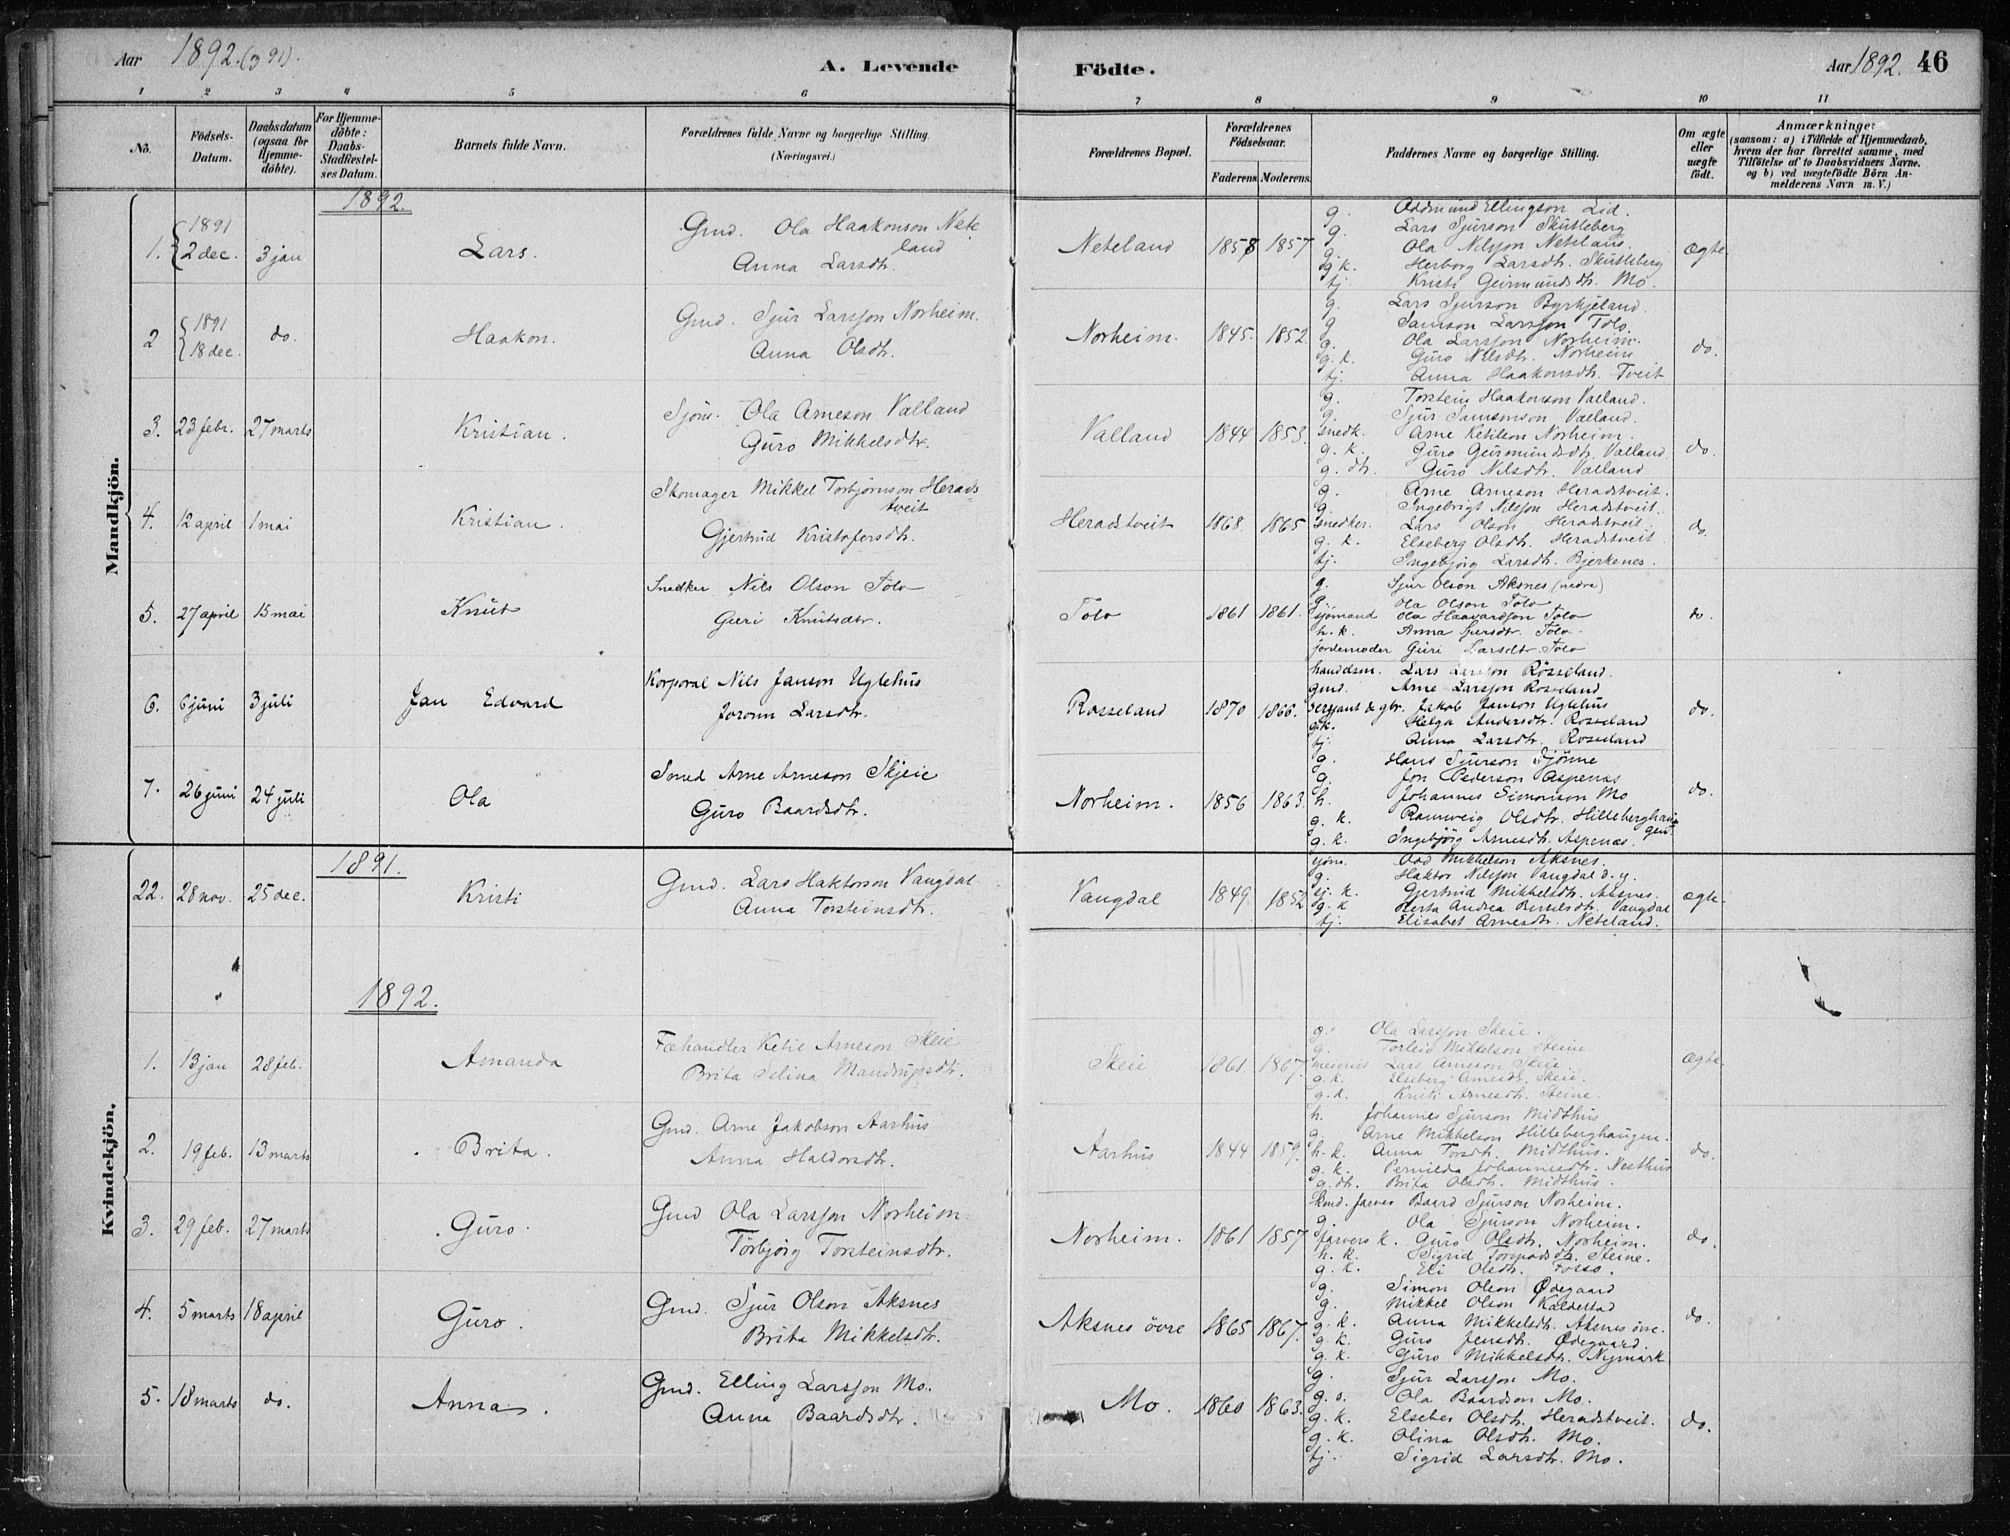 Aar 1892. (3 91).
A. Levende
Födte.
Aar 1892. 46
1 2 3 4 5 6 7 8 9 10 11
No.
Födsels-Datum.
Daabsdatum (ogsaa for Hjemme-döbte).
For Hjemme-döbte: Daabs-Stadfæstel-ses Datum.
Barnets fulde Navn.
Forældrenes fulde Navne og borgerlige Stilling. (Næringsvei.)
Forældrenes Bopæl.
Forældrenes Födselsaar.
Faderens Moderens.
Faddernes Navne og borgerlige Stilling.
Om ægte eller uægte födt.
Anmærkninger
(saasom: a) i Tilfælde af Hjemmedaab,
hvem der har forrettet samme, med
Tilföielse af to Daabsvidners Navne,
og b) ved uægtefödte Börn An-
melderens Navn m. V.)
Mandkjön.
1892.
1. 1891 2 dec. 3 jan Lars.
Gmd. Ola Haakonson Nete
land
Anna Larsdtr.
Neteland 1858 1857
g. Oddmund Ellingson Lid.
g. Lars Sjurson Skutleberg
g. Ola Nilsson Neteland.
g.k. Herborg Larsdtr. Skutleberg
tj. Kristi Geirmundsdtr. Mo.
Ægte
2 1891 18 dec. do. Haakon.
Gmd. Sjur Larsson Norheim.
Anna Olsdtr.
Norheim. 1845. 1852.
g. Lars Sjurson Byrkjeland.
g Samson Larsson Tolo.
g. Ola Larsson Norheim.
g.k. Guro Nilsdtr. Norheim
tj. Anna Haakonsdtr. Tveit
do.
3. 23 febr. 27 marts Kristian.
Sjöm. Ola Arneson Valland
Guro Mikkelsdtr.
Valland 1844 1853.
g. Torstein Haakonson Valland.
g. Sjur Samsonson Valland.
snedk. Arne Ketilson Norheim.
g.k. Guro Geirmundsdtr. Valland.
g.dtr. Guro Nilsdtr. Valland.
do.
4. 12 april 1 mai Kristian.
Skomager Mikkel Torbjörnson Herads
tveit
Gjertrud Kristofersdtr.
Heradstveit 1868. 1865
g. Arne Arneson Heradstveit.
g. Ingebrigt Nilsson Heradstveit.
snedker. Lars Olson Heradstveit
g.k. Elseberg Olsdtr. Heradstveit
tj. Ingebjörg Larsdtr. Bjerkenes.
do.
5. 27 april 15 mai Knut
Snedker Nils Olson Tolo
Guri Knutsdtr.
Tolo 1861 1861.
g. Sjur Olson Aksnes (nedre)
g. Ola Olson Tolo
sjömand Ola Haavardson Tolo
h.k. Anna Sjursdtr. Tolo.
jordemoder Guri Larsdtr. Tolo
do.
6. 6 juni 3 juli Jan Edvard
Korporal Nils Janson Uglehus
Joronn Larsdtr.
Rosseland 1870 1866.
handelsm. Lars Larsson Rosseland.
gmd. Arne Larsson Rosseland
sersjant & gbr. Jakob Janson Uglehus
g.k. Helga Andersdtr. Rosseland
tj. Anna Larsdtr. Rosseland
do.
7. 26 juni 24 juli Ola
Smed Arne Arneson Skjeie
Guro Baardsdtr.
Norheim. 1856 1863.
g. Hans Sjurson Sjönne
g. Jon Pederson Aspenes
h. Johannes Simonson Mo
g.k. Ramveig Olsdtr. Hilleberghau-
gen.
g.k. Ingebjörg Arnesdtr. Aspenes.
do.
Kvindekjön.
1891.
22. 28 nov. 25 dec. Kristi
Gmd. Lars Haktorson Vangdal
Anna Torsteinsdtr.
Vangdal 1849. 1852
sjöm. Odd Mikkelson Aksnes.
g. Haktor Nilsson Vangdal d.y.
sj.k. Gjertrud Mikkelsdtr. Aksnes.
g.k Herta Andrea Bertelsdtr. Vangdal
tj. Elisabet Arnesdtr. Neteland.
ægte.
1892.
1. 13 jan 28 feb. Amanda
Fæhandler Ketil Arneson Skeie
Brita Selina Mandrupsdtr.
Skeie 1861. 1867.
g. Ola Larsson Skeie.
g. Torleiv Mikkelson Steine
Lars Arneson Skeie.
g.k. Elseberg Arnesdtr. Skeie.
g.k. Kristi Arnesdtr. Steine.
Ægte
2. 19 feb. 13 marts Brita.
Gmd. Arne Jakobson Aarhus
Anna Haldorsdtr.
Aarhus 1844 1859.
h. Johannes Sjurson Midthus
g. Arne Mikkelson Hilleberghaugen.
h.k. Anna Torsdtr. Midthus.
g.k. Pernilda Johannesdtr. Nesthus
g.dtr. Brita Olsdtr. Midthus.
do.
3. 29 feb. 27 marts Guro.
Gmd Ola Larsson Norheim
Torbjörg Torsteinsdtr.
Norheim. 1861 1857
Baard Sjurson Norheim.
g. Ola Sjurson Norheim.
farvers k. Guro Olsdtr. Norheim.
h.k. Sigrid Tormodsdtr. Steine.
g.k. Eli Olsdtr. Fosso.
do.
4. 5 marts 18 april Guro.
Gmd. Sjur Olson Aksnes
Brita Mikkelsdtr.
Aksnes övre 1865 1867.
g. Simon Olson Ödegaard
g. Mikkel Olson Kaldestad
g.k. Anna Mikkelsdtr. Aksnes övre.
g.k. Guro Jensdtr. Ödegaard.
g.k. Guro Mikkelsdtr. Nymark
do.
5. 18 marts do. Anna.
Gmd. Elling Larsson Mo.
Anna Baardsdtr.
Mo. 1860 1863.
g. Sjur Larsson Mo.
g.s. Ola Baardson Mo.
g.k. Elseber Olsdtr. Heradstveit.
g.k. Olina Olsdtr. Mo.
tj. Sigrid Larsdtr. Mo.
do.